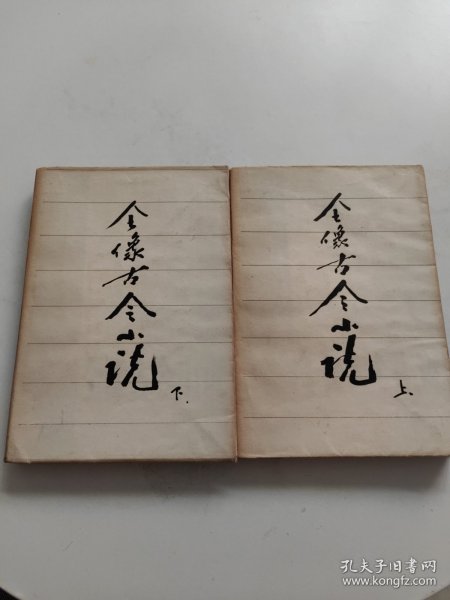 全像古今小说
下.
全像古今小说
上.
孔夫子旧书网
www.kongfz.com